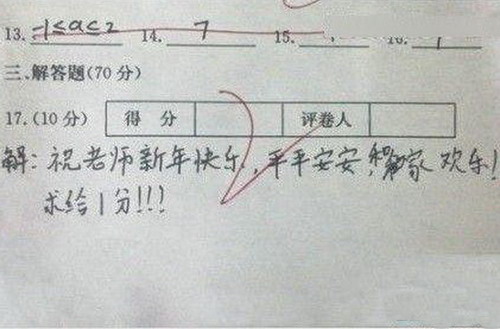 13. -1≤a≤2 14. 7 15. 16.
三、解答题(70 分)
17.(10 分) 得 分 评卷人
解: 祝老师新年快乐, 平平安安, 家欢乐!
求给1分!!!